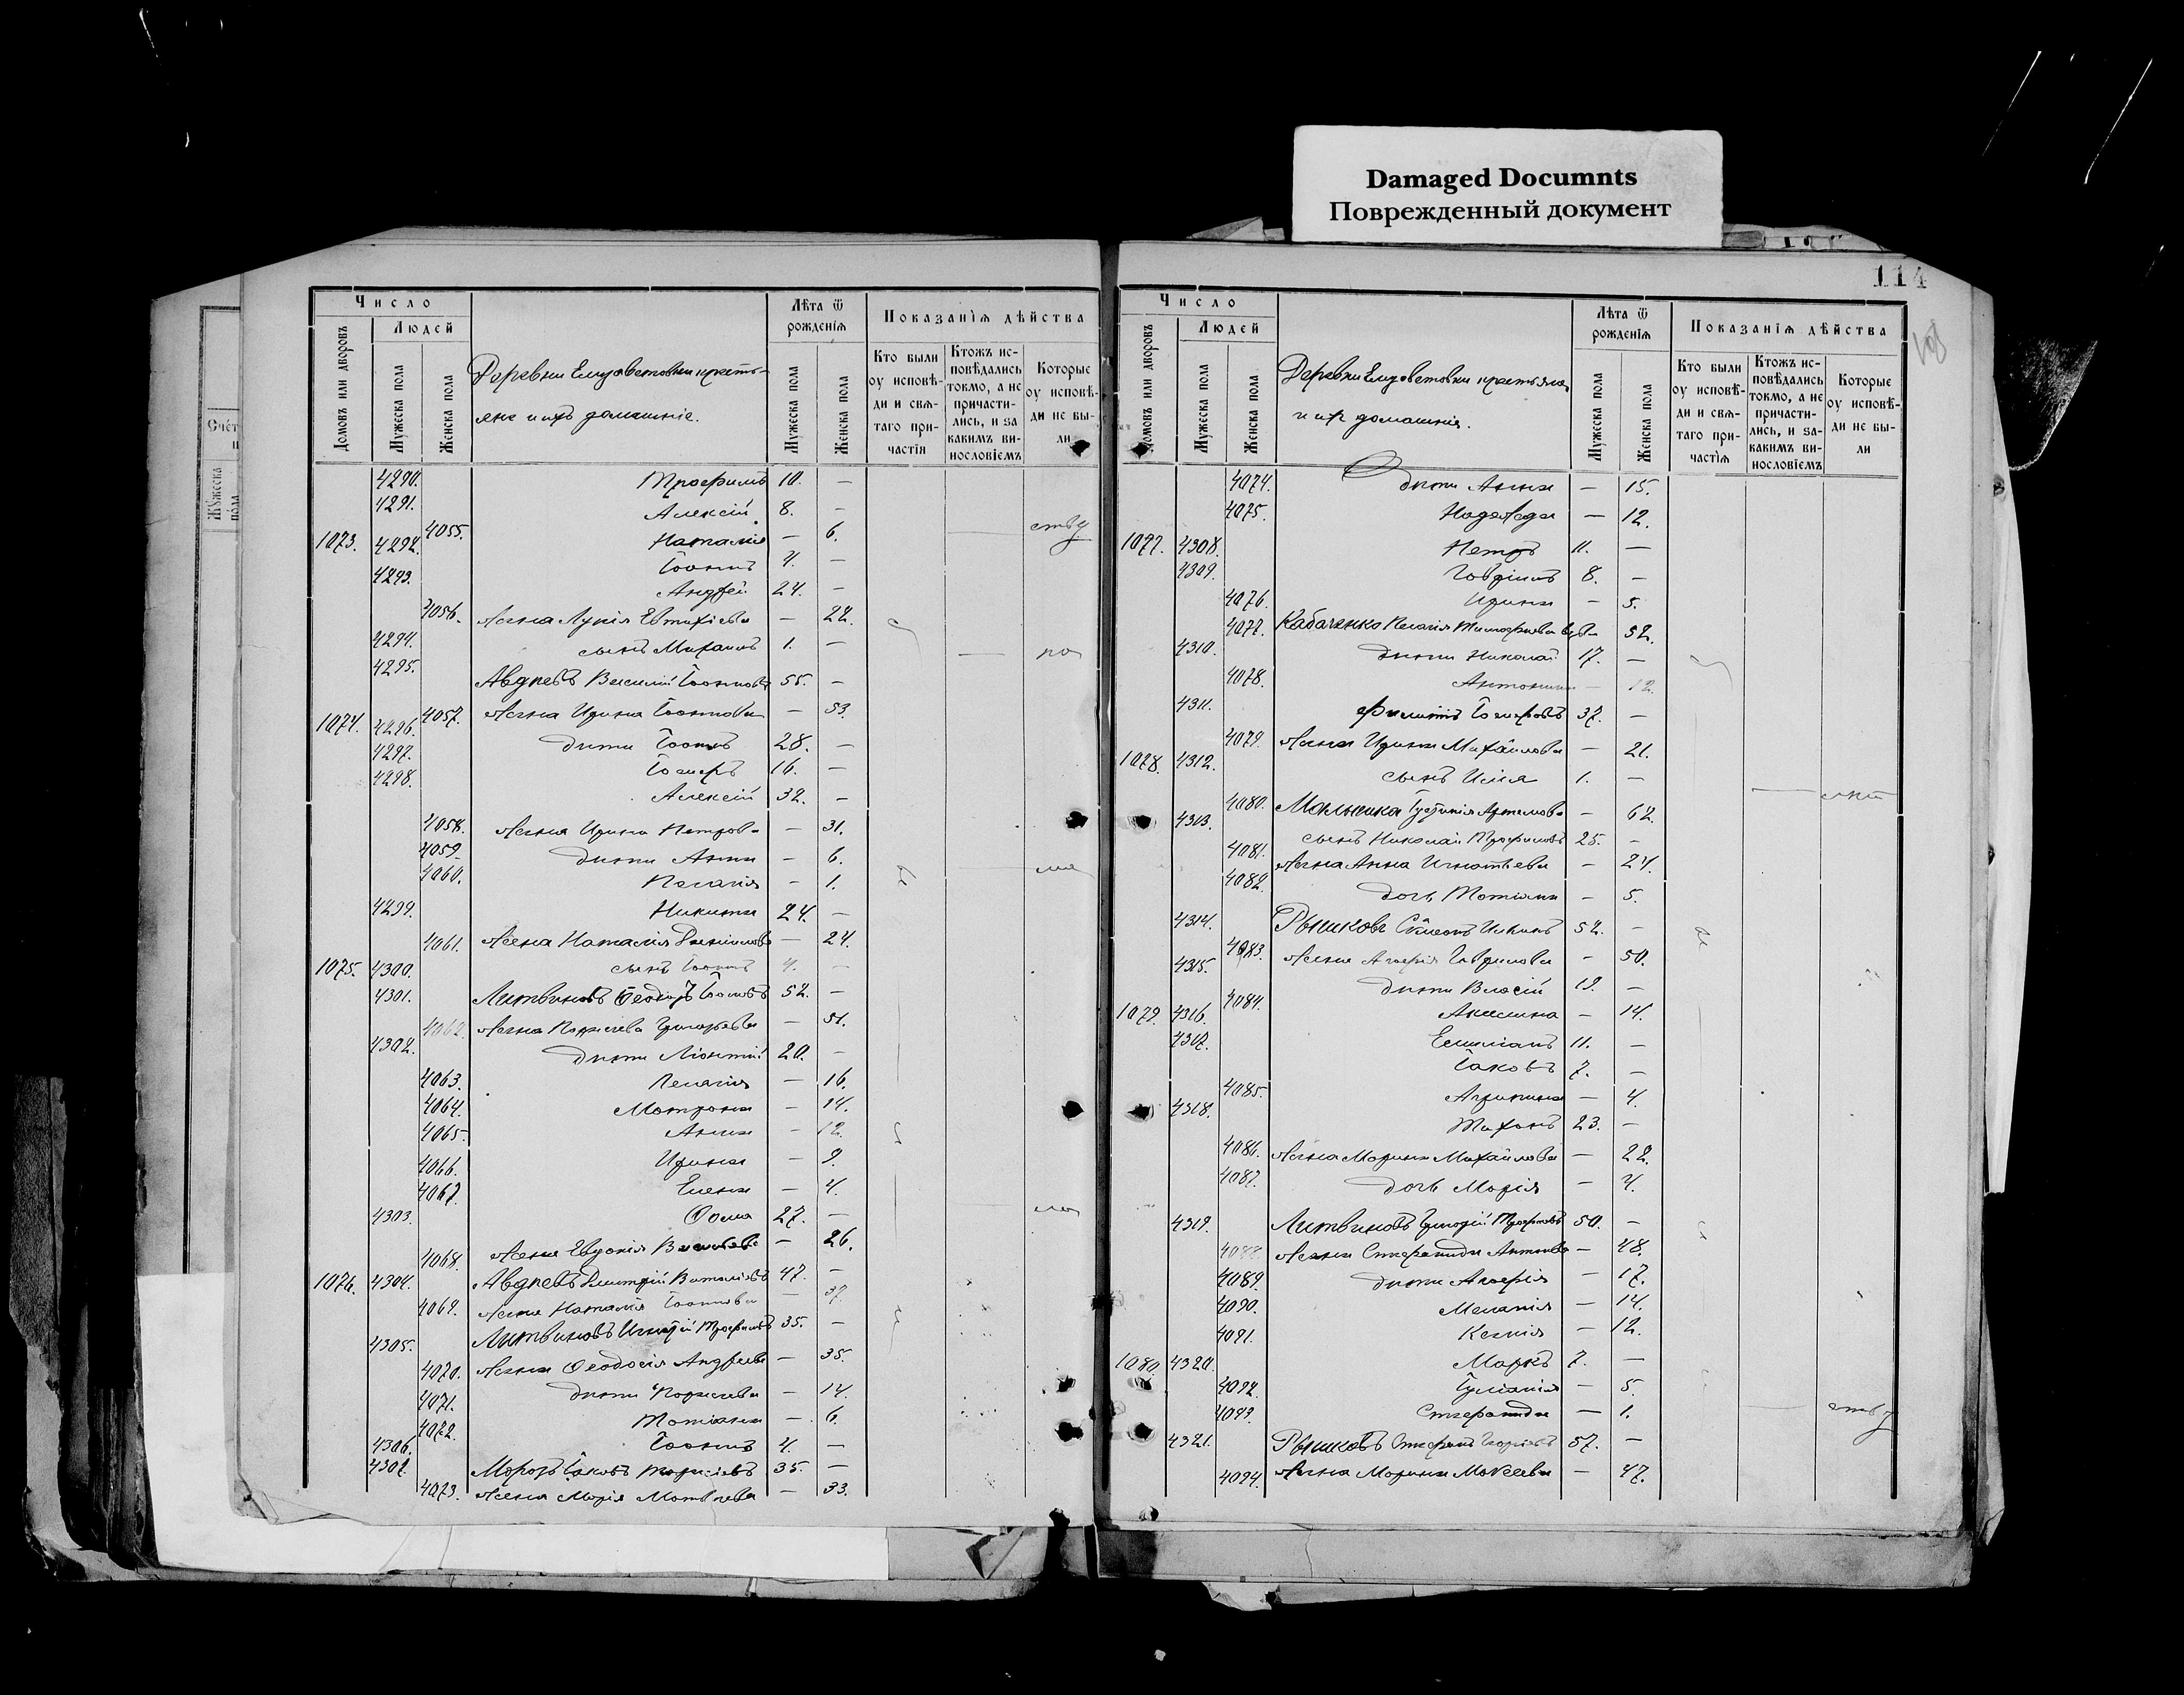 Damaged Documnts
Поврежденный документ
114
Число
Людей
Домовъ или дворовъ
Мужеска пола
Женска пола
Деревни Елизаветовки кресть-
яне и ихъ домашніе.
Лѣта ѿ рожденія
Мужеска пола
Женска пола
Показанія дѣйства
Кто были оу исповѣ-ди и свя-таго при-частія
Ктожъ ис-повѣдались токмо, а не причасти-лись, и за какимъ ви-нословіемъ
Которые оу исповѣ-ди не бы-ли
4290. Трофимъ 10. —
4291. Алексій 8. —
4055. Наталія — 6.
1073. 4292. Іоаннъ 4. —
4293. Андрей 24. —
4056. Жена Лукія Евтихіева — 22.
4294. сынъ Михаилъ 1. —
4295. Авдѣевъ Василій Іоанновъ 55. —
4057. Жена Ирина Іоаннова — 53.
1074. 4296. дѣти Іоаннъ 28. —
4297. Іосифъ 16. —
4298. Алексій 32. —
4058. Жена Ирина Петрова — 31.
4059. дѣти Анна — 6.
4060. Пелагія — 1.
4299. Никита 24. —
4061. Жена Наталія — 24.
1075. 4300. сынъ Іоаннъ 4. —
4301. Литвиновъ Ѳеодоръ Іоанновъ 52. —
4062. Жена Григорьева — 51.
4302. дѣти Леонтій 20. —
4063. Пелагія — 16.
4064. Матрона — 14.
4065. Анна — 12.
4066. Ирина — 9.
4067. Елена — 4.
4303. Ѳома 27. —
4068. Жена Евдокія — 26.
1076. 4304. Авдѣевъ Димитрій 47. —
4069. Жена Наталія Іоаннова — 37.
4305. Литвиновъ Игнатій Трофимовъ 35. —
4070. Жена Ѳеодосія Андреева — 35.
4071. дѣти — 14.
4072. Татіана — 6.
4306. Іоаннъ 4. —
4307. Морозъ Іаковъ 35. —
4073. Жена Марія Матвѣева — 33.
Число
Людей
Домовъ или дворовъ
Мужеска пола
Женска пола
Деревни Елизаветовки крестьяне
и ихъ домашніе.
Лѣта ѿ рожденія
Мужеска пола
Женска пола
Показанія дѣйства
Кто были оу исповѣ-ди и свя-таго при-частія
Ктожъ ис-повѣдались токмо, а не причасти-лись, и за-какимъ ви-нословіемъ
Которые оу исповѣ-ди не бы-ли
4074. дѣти Анна — 15.
4075. Надежда — 12.
1077. 4308. Петръ 11. —
4309. Гавріилъ 8. —
4076. Ирина — 5.
4077. Кабаченко Пелагія Тимофеева вдова 52.
4310. дѣти Николай 17. —
4078. Антонина — 12.
4311. Филиппъ Іосифовъ 37. —
4079. Жена Ирина Михайлова — 21.
1078. 4312. сынъ Илія 1. —
4080. Іустинія Артемова — 62.
4313. сынъ Николай Трофимовъ 25. —
4081. Жена Анна Игнатьева — 24.
4082. дочь Татіана — 5.
4314. Рышковъ Сѵмеонъ 52. —
4083. Жена Агафія Гаврилова — 50.
4315. дѣти Власій 19. —
4084. Акилина — 14.
1079. 4316. Емиліанъ 11. —
4317. Іаковъ 7. —
4085. Агрипина — 4.
4318. Тихонъ 23. —
4086. Жена Марина Михайлова — 22.
4087. дочь Марія — 4.
4319. Литвиновъ Григорій Трофимовъ 50. —
4088. Жена Стефанида Антонова — 48.
4089. дѣти Агафія — 17.
4090. Меланія — 14.
4091. Ксенія — 12.
1080. 4320. Маркъ 7. —
4092. Іуліанія — 5.
4093. Стефанида — 1.
4321. Рышковъ Стефанъ 57. —
4094. Жена Марина Мокеева — 47.